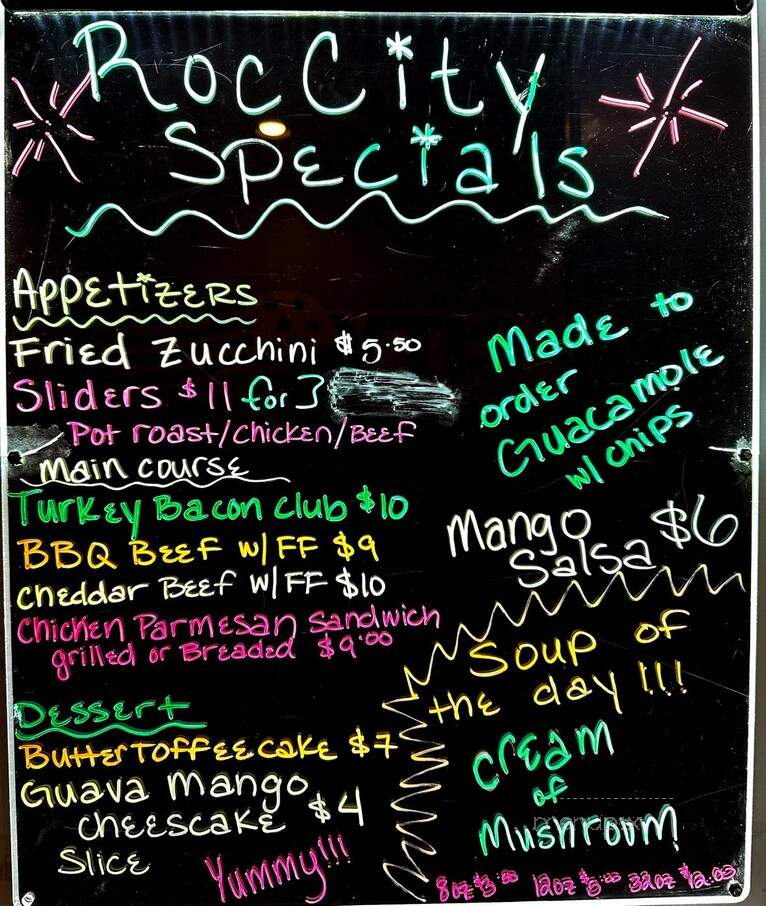 RocCity
Specials
Appetizers
Fried Zucchini $5.50
Sliders $11 for 3
Pot roast/Chicken/Beef
Main course
Turkey Bacon Club $10
BBQ Beef w/FF $9
Cheddar Beef w/FF $10
Chicken Parmesan Sandwich
grilled or Breaded $9.00
Dessert
Butter Toffee cake $7
Guava Mango
Cheescake $4
Slice
Yummy!!!
Made to
order
Guacamole
w/ chips
Mango $6
Salsa
Soup of
the day!!!
Cream
of
Mushroom
8oz $3.00 12oz $5.00 32oz $12.03